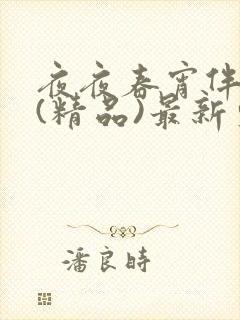 夜夜春宵伴
(精品)最新
潘良時